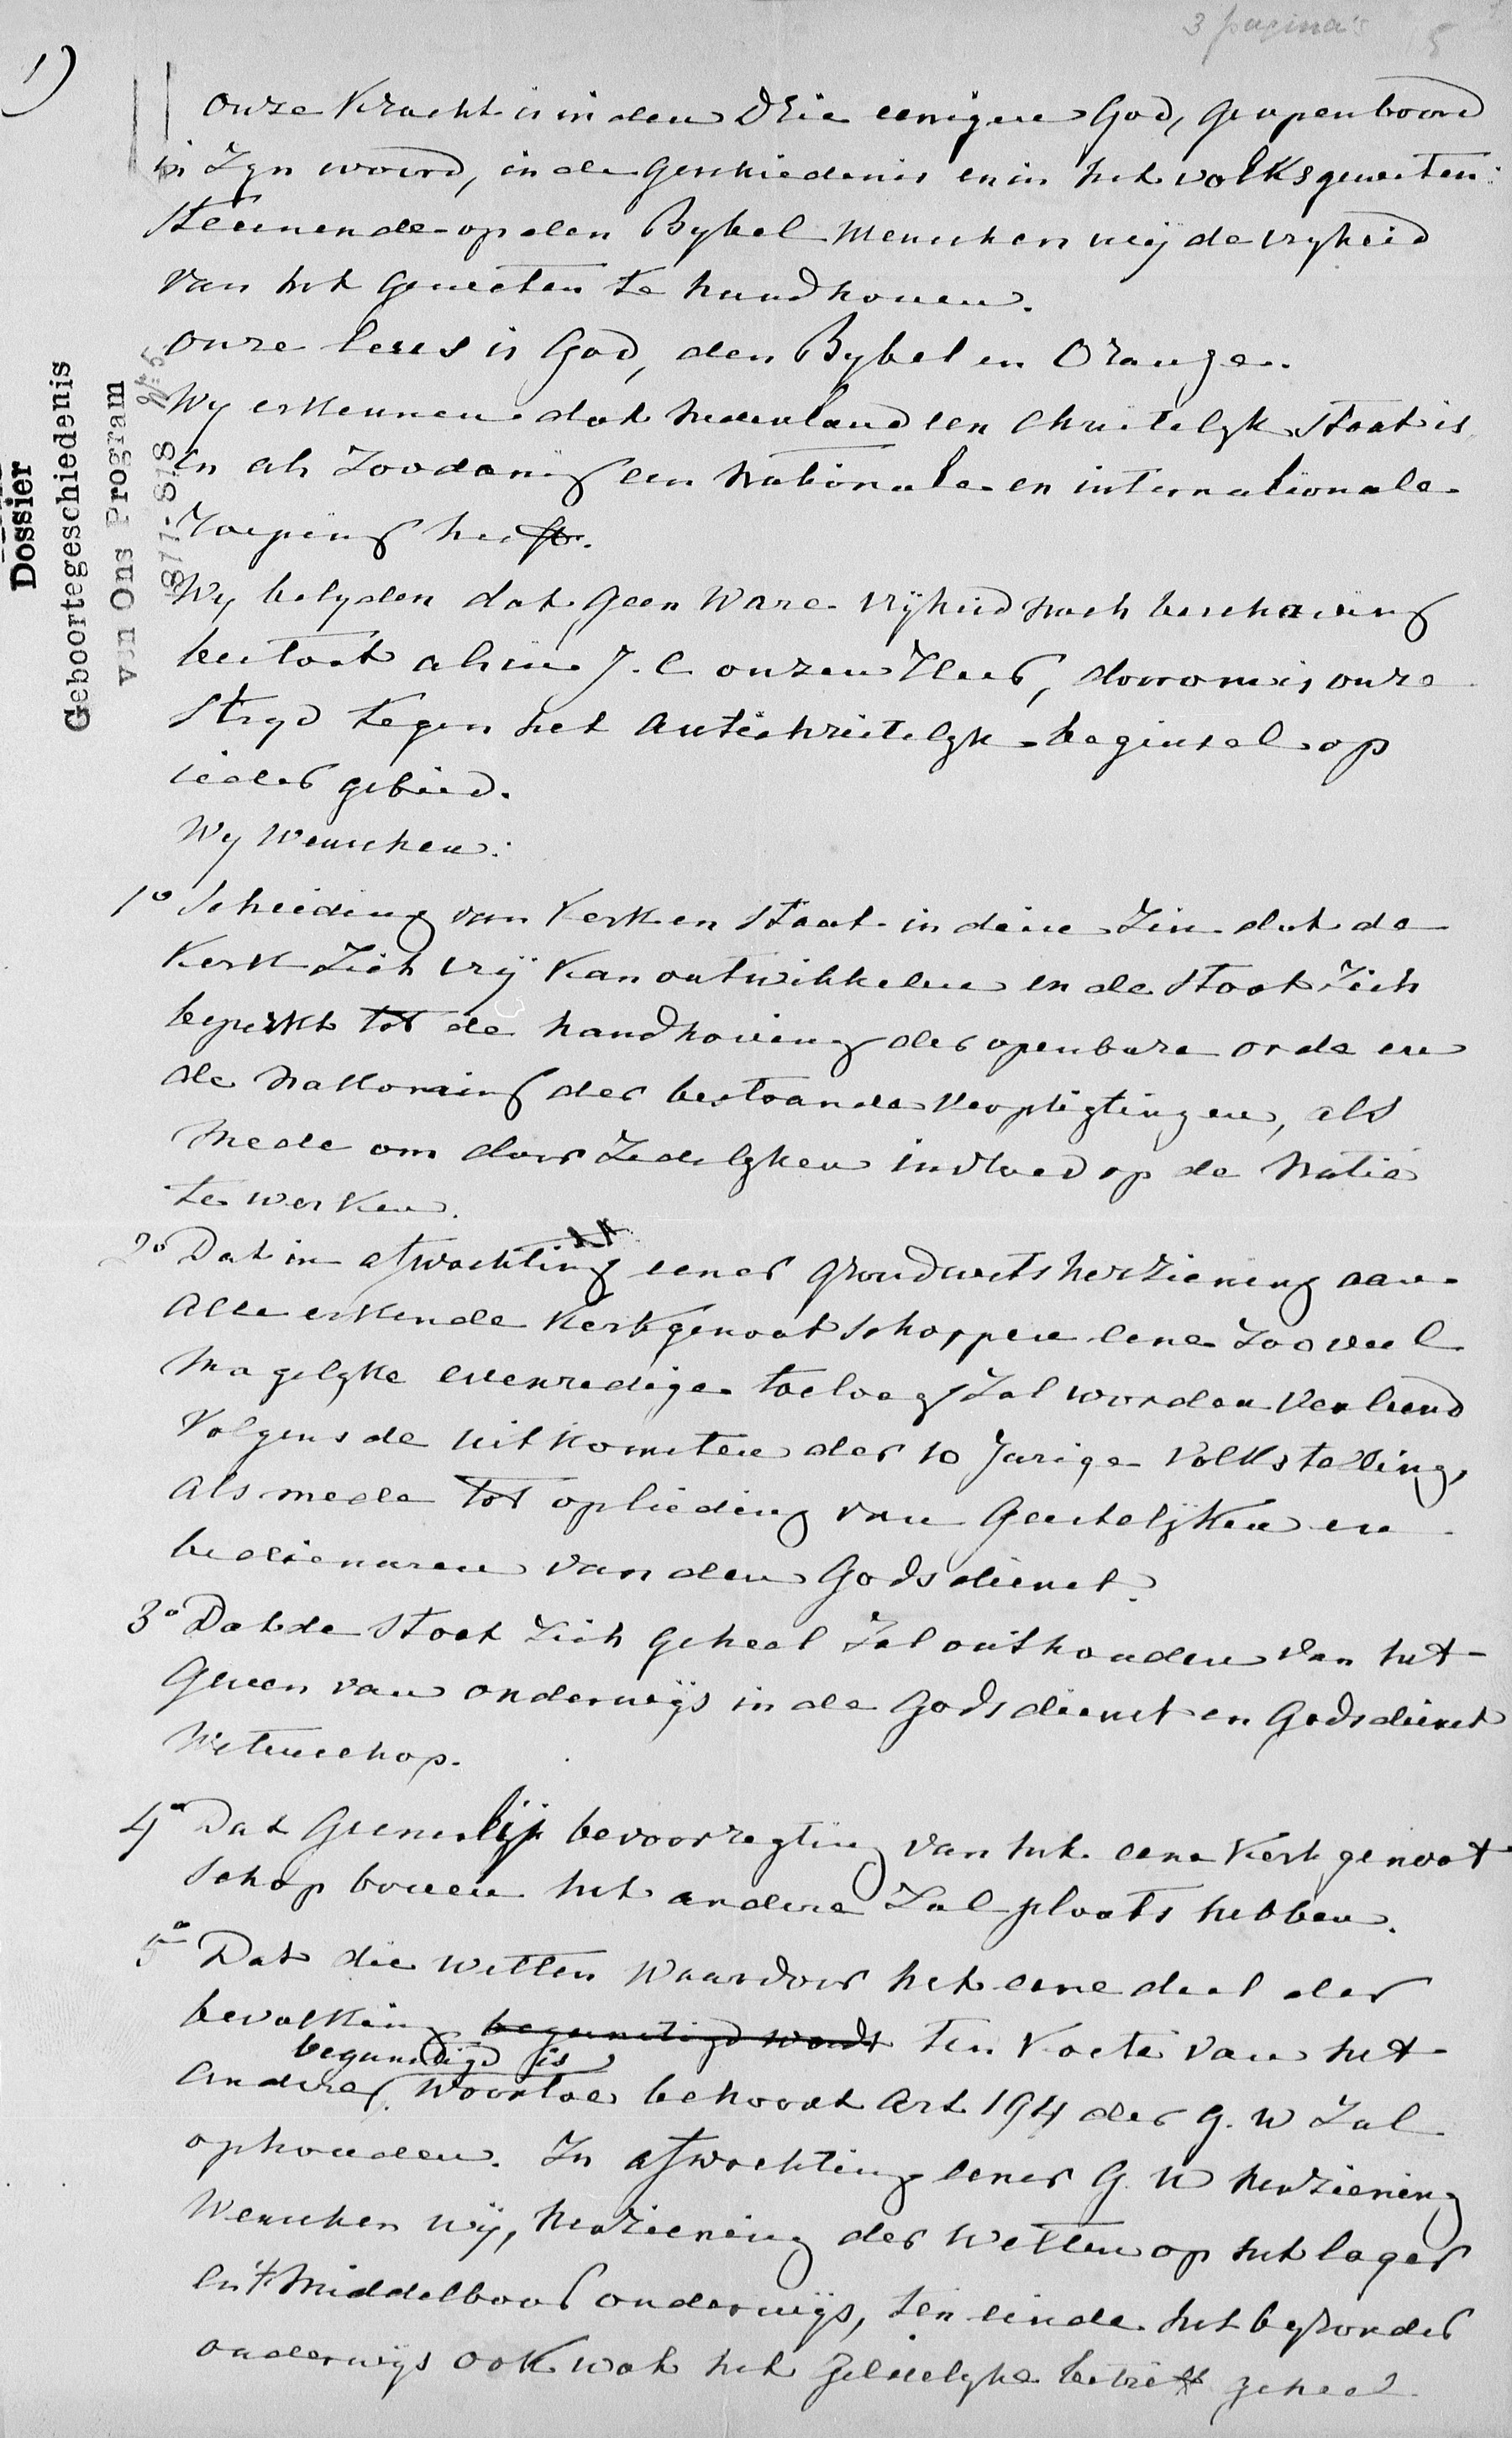 3 pagina's 5
1)
Dossier
Geboortegeschiedenis
van Ons Program
1877-878 No 5
Onze kracht is in den Drie eenigen God, geopenbaard
in Zyn woord, in de geschiedenis en in het volksgeweten:
Steunende op den Bybel wenschen wij de vryheid
van het geweten te handhouen.
Onze leus is God, den Bybel en Oranje.
Wy erkennen dat Nederland een Christelyk Staat is
en als Zoodanig een Nationale en internationale
roeping heeft.
Wy belyden dat geen Ware vrijheid noch beschaving
bestaat als in J. C. onzen Heer, daarom is onze
Stryd tegen het Antichristelyk beginsel op
ieder gebied.
Wy Wenschen:
1o Scheiding van Kerk en Staat in dien Zin dat de
Kerk Zich vrij kan ontwikkelen en de Staat Zich
beperkt tot de handhoving der openbare orde en
de Nakoming der bestaande Verpligtingen, als
mede om door Zedelyken invloed op de Natie
te werken.
2o Dat in afwachting eener grondwetsherziening aan
Alle erkende Kerkgenootschappen eene Zooveel
Mogelyke evenredige toelaag Zal worden Verleend
Volgens de uitkomsten der 10 Jarige Volkstelling,
Als mede tot opleiding van Geestelijken en
bedienaren van den Godsdienst.
3o Dat de Staat Zich geheel Zal onthouden van het
Geven van onderwijs in de Godsdienst en Godsdienst
Wetenschap.
4o Dat Geenerlij bevoorregting van het eene Kerkgenoot
Schap boven het andere Zal plaats hebben.
5o Dat die Wetten Waardoor het eene deel der
bevolking begunstigd wordt ten Koste van het
begunstigd is
andere, Waartoe behoort Art 194 der G. W Zal
ophouden. In afwachting eener G. W herziening
Wenschen wij, herziening der Wetten op het lager
en 't Middelbaar onderwijs, ten einde het byzonder
onderwijs ook wat het geldelyke betreft geheel